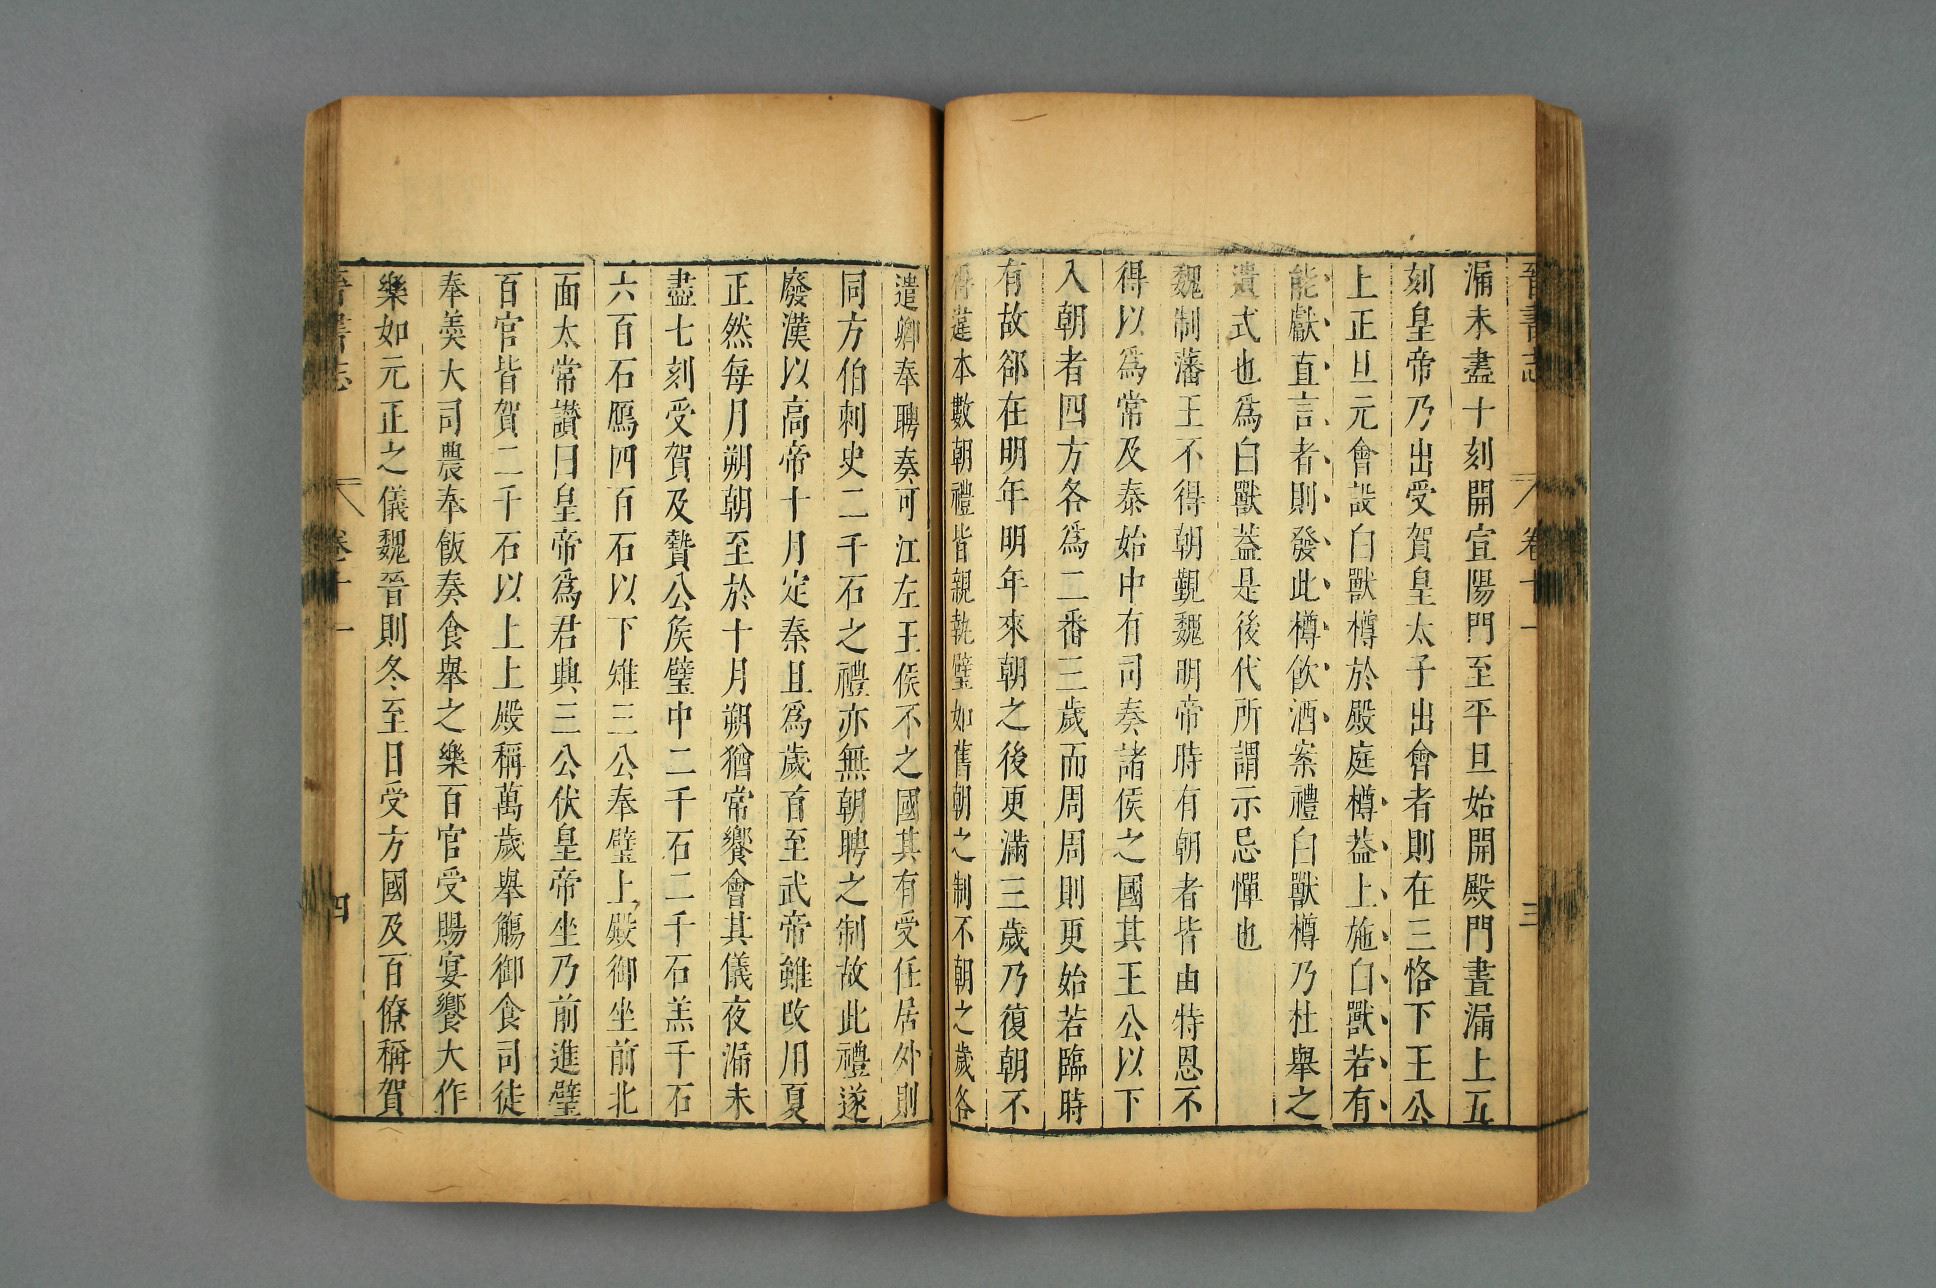 晉書志 卷十一 三
漏未盡十刻開宣陽門至平旦始開殿門晝漏上五
刻皇帝乃出受賀皇太子出會者則在三恪下王公
上正旦元會設白獸樽於殿庭樽葢上施白獸若有
能獻直言者則發此樽飮酒案禮白獸樽乃杜舉之
遺式也爲白獸葢是後代所謂示忌憚也
魏制藩王不得朝覲魏明帝時有朝者皆由特恩不
得以爲常及泰始中有司奏諸侯之國其王公以下
入朝者四方各爲二番三歲而周周則更始若臨時
有故郤在明年明年來朝之後更滿三歲乃復朝不
得違本數朝禮皆親執璧如舊朝之制不朝之歲各
遣卿奉聘奏可江左王侯不之國其有受任居外則
同方伯刺史二千石之禮亦無朝聘之制故此禮遂
廢漢以高帝十月定秦且爲歲首至武帝雖改用夏
正然每月朔朝至於十月朔猶常饗會其儀夜漏未
盡七刻受賀及贄公矦璧中二千石二千石羔千石
六百石鴈四百石以下雉三公奉璧上殿御坐前北
面太常讃曰皇帝爲君興三公伏皇帝坐乃前進璧
百官皆賀二千石以上上殿稱萬歲舉觴御食司徒
奉羮大司農奉飯奏食舉之樂百官受賜宴饗大作
樂如元正之儀魏晉則冬至日受方國及百僚稱賀
晉書志 卷十一 四